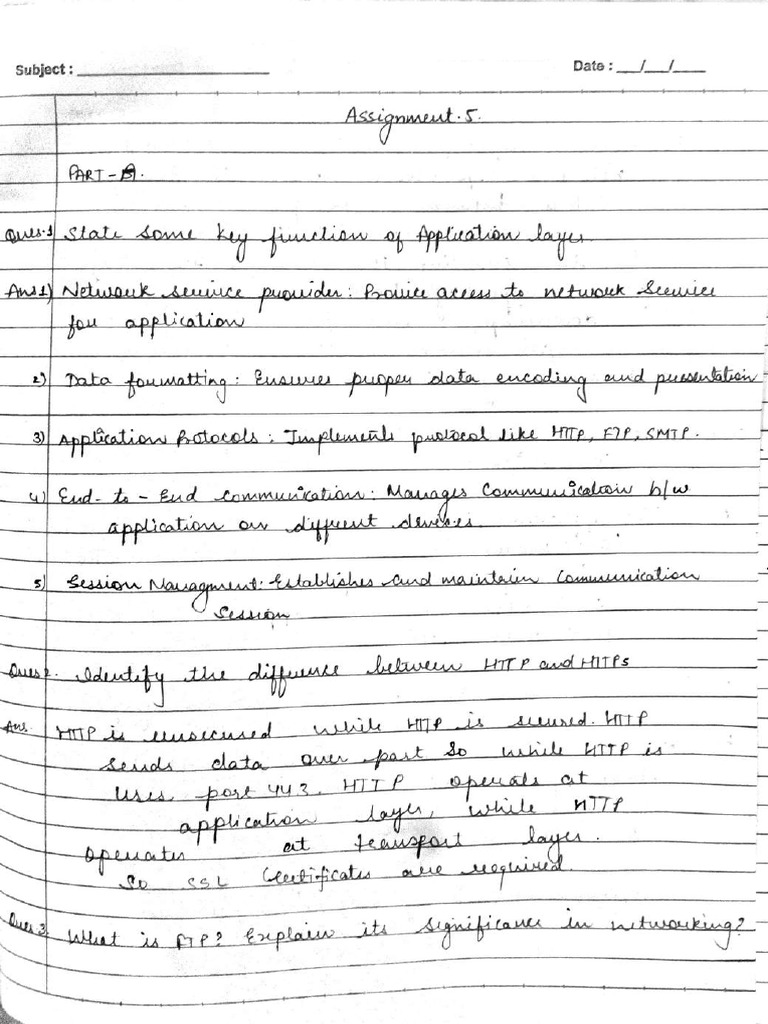 Subject : ____________ Date : __/__/__
Assignment. 5.
PART-A.
Ques.1 State some key function of Application layer
Ans 1) Network service provider: Provice access to network Service
for application
2) Data formatting: Ensures proper data encoding and presentation
3) Application Protocols: Implements protocol like HTTP, FTP, SMTP.
4) End-to-End communication: Manages Communication b/w
application on different devices.
5) Session Managment: Establishes and maintain Communication
Session
Ques 2. Identify the difference between HTTP and HTTPs
Ans. HTTP is unsecured while HTTP is secured. HTTP
sends data over port 80 while HTTP is
uses port 443. HTTP operats at
application layer, while HTTP
operates at transport layer.
So SSL Certificates are required.
Ques.3 What is FTP? Explain its significance in networking?